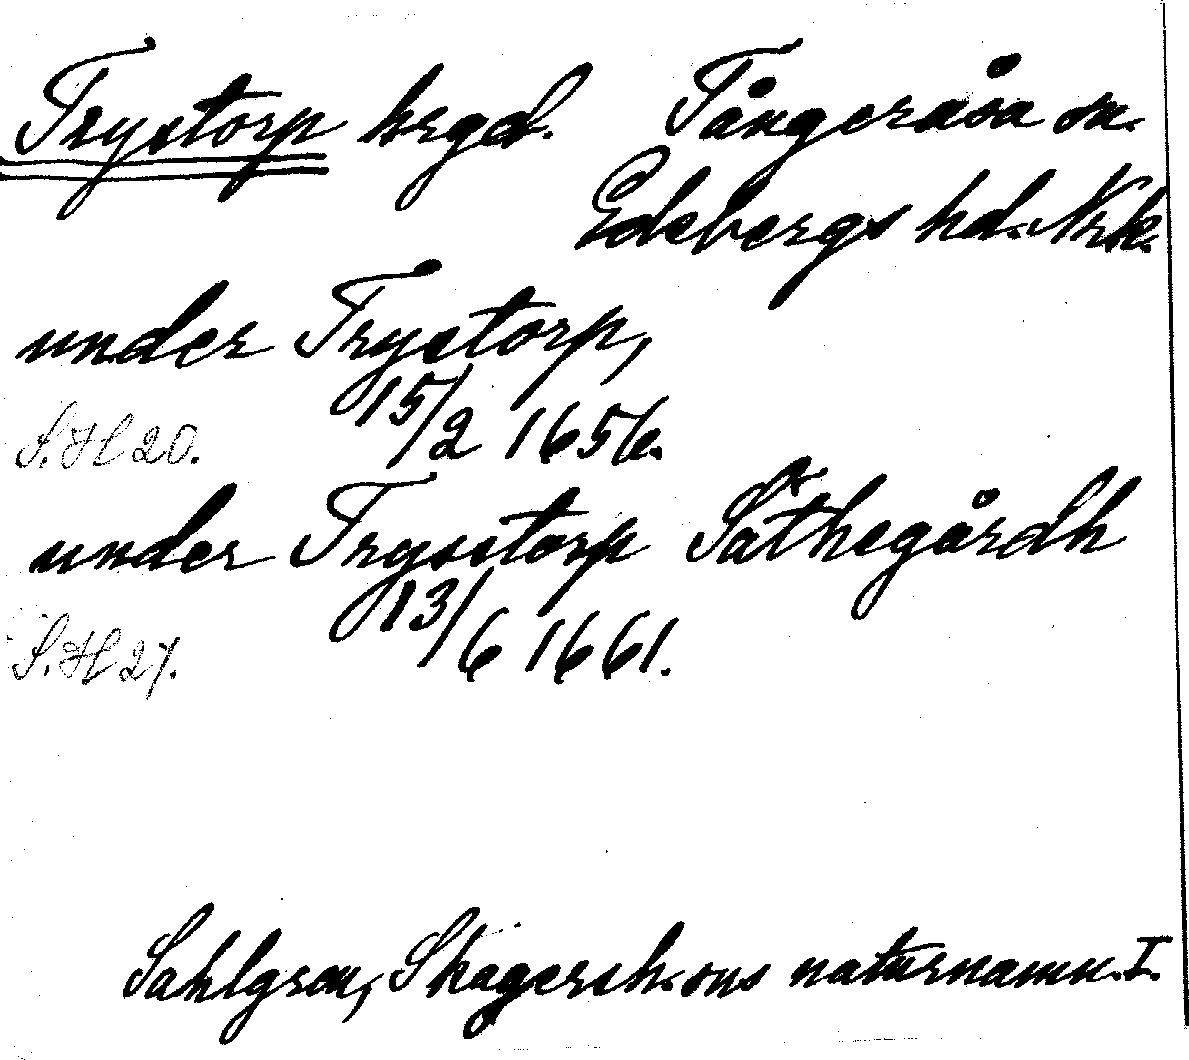 Trystorp hrgd. Tångeråsa sn.
Edsbergs hd. Nrk.
under Trystorp,
15/2 1656.
S.H 20.
under Trysstorp Sáthegårdh
13/6 1661.
S.H 27.
Sahlgren, Skagersh:sons naturnamn. I.